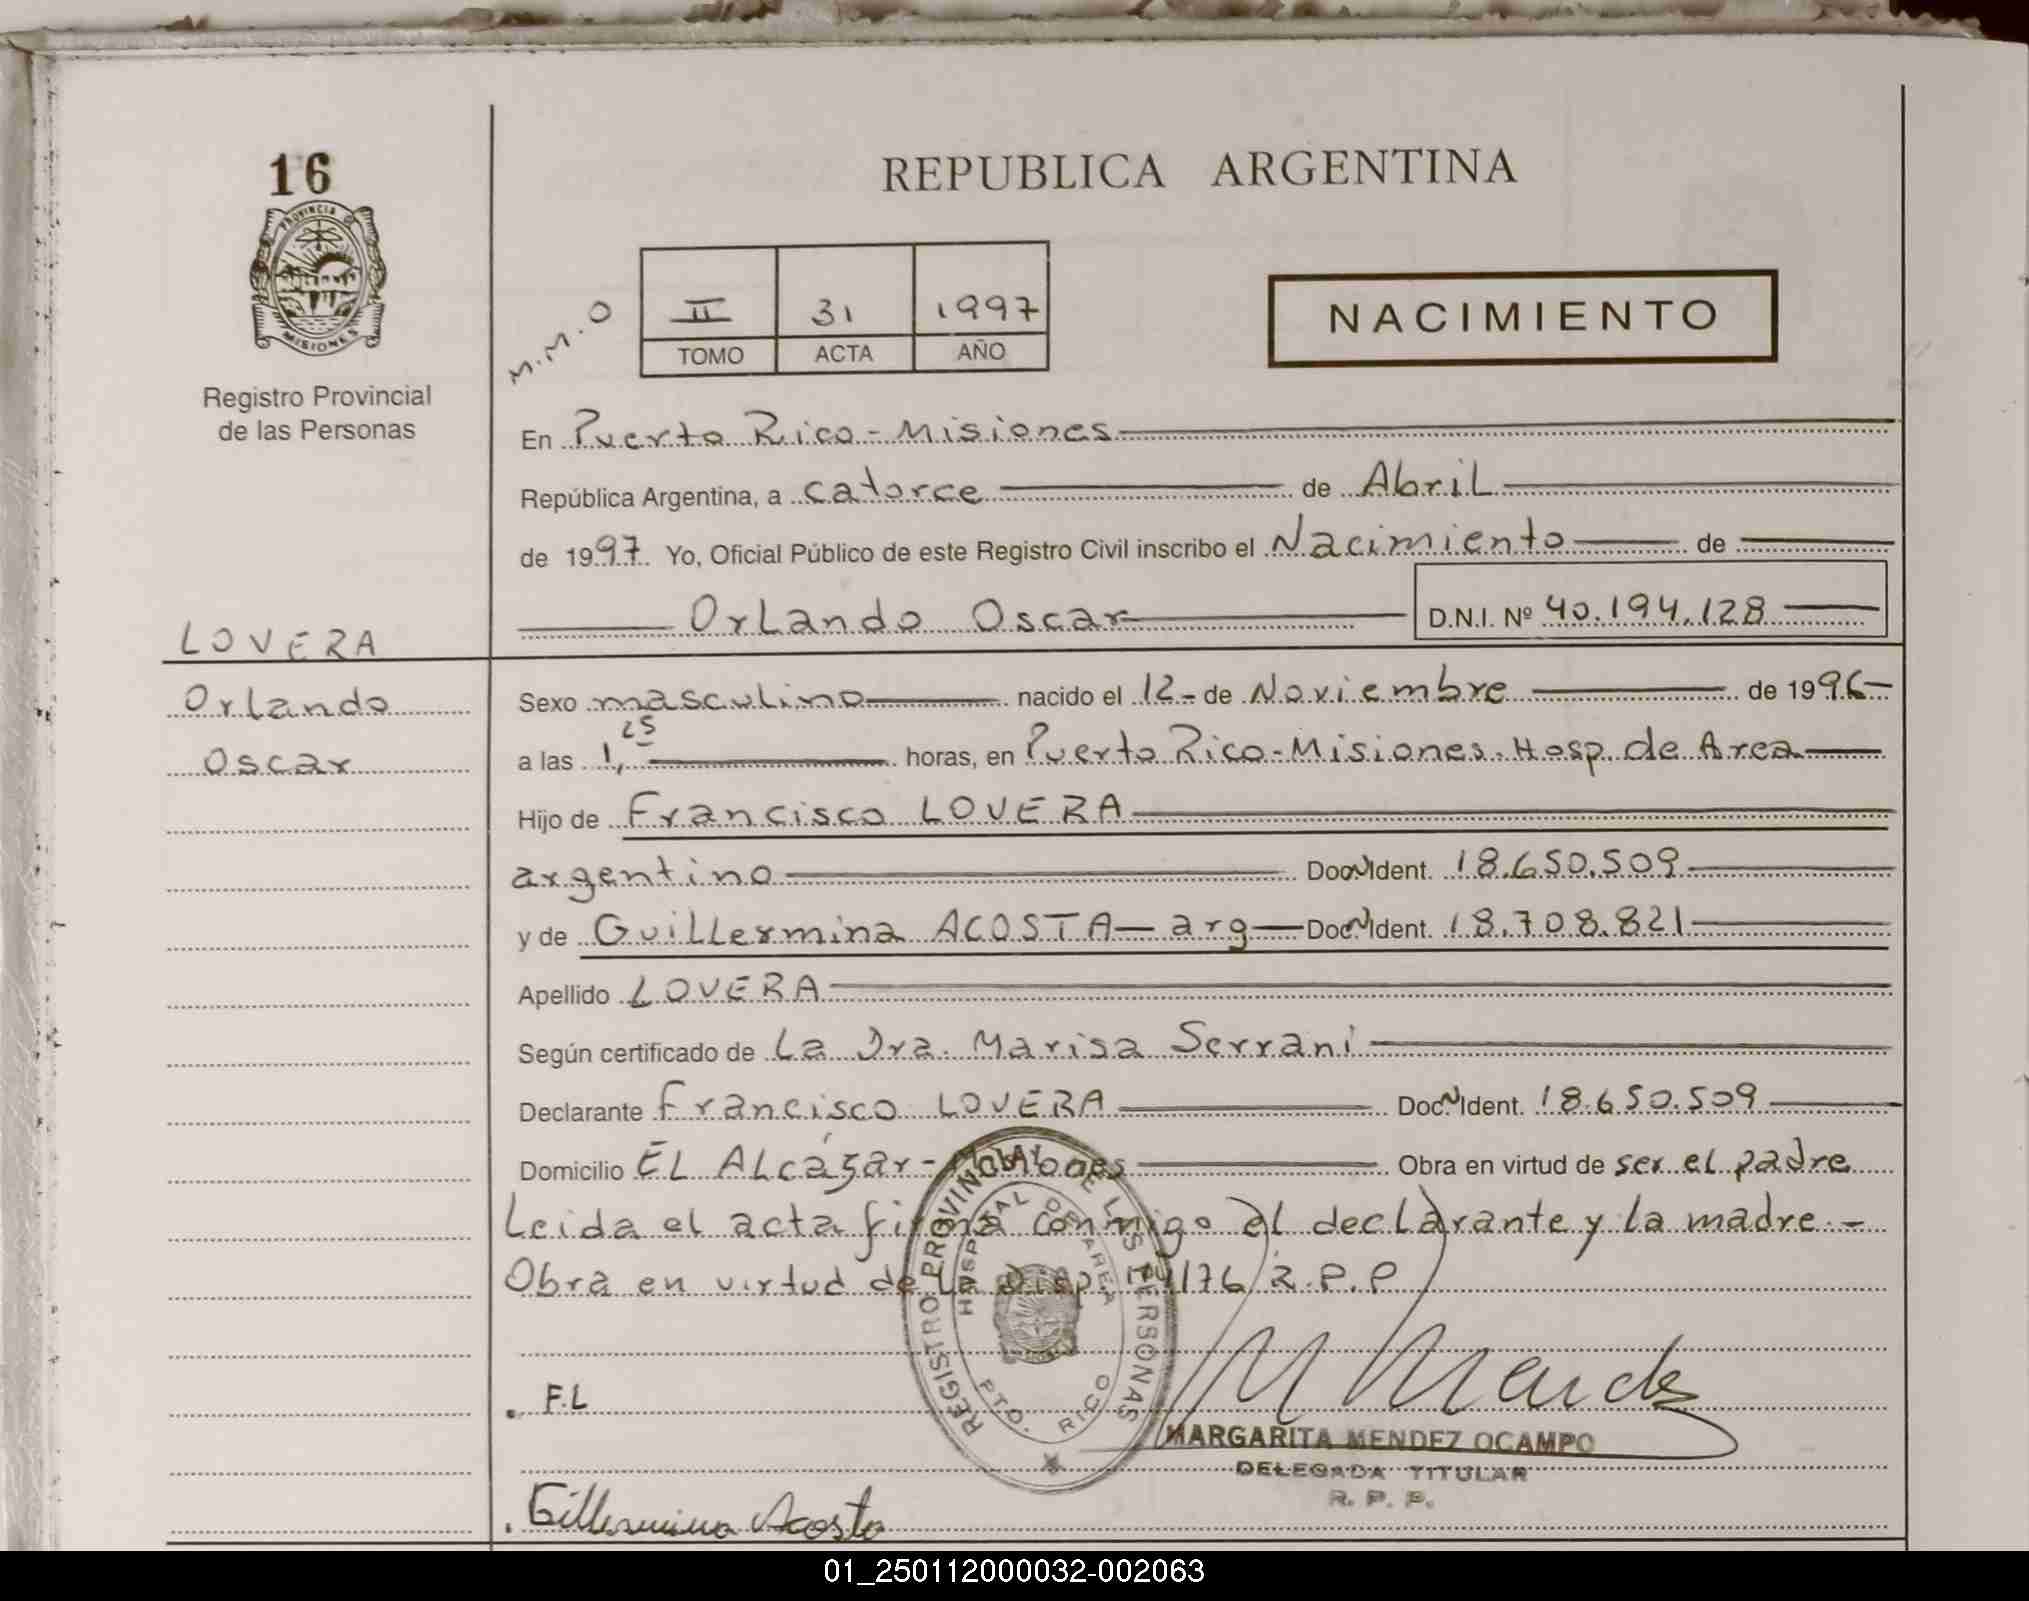 16
REPUBLICA ARGENTINA
PROVINCIA DE MISIONES
Registro Provincial
de las Personas
M.M.O
II 31 1997
TOMO ACTA AÑO
NACIMIENTO
En Puerto Rico - Misiones
República Argentina, a catorce de Abril
de 1997 Yo, Oficial Público de este Registro Civil inscribo el Nacimiento de
Orlando Oscar D.N.I. Nº 40.194.128
LOVERA
Orlando
Oscar
Sexo masculino nacido el 12 - de Noviembre de 1996
a las 1,25 horas, en Puerto Rico - Misiones. Hosp. de Area
Hijo de Francisco LOVERA
argentino Doc. Ident. 18.650.509
y de Guillermina ACOSTA - arg - Doc. Ident. 18.708.821
Apellido LOVERA
Según certificado de La Dra. Marisa Serrani
Declarante Francisco LOVERA Doc. Ident. 18.650.509
Domicilio EL ALcázar - Misiones Obra en virtud de ser el padre
Leida el acta firma conmigo el declarante y la madre. -
Obra en virtud de la Disp. /76 R.P.P
REGISTRO PROVINCIAL DE LAS PERSONAS
HOSPITAL DE AREA
PTO. RICO
F.L
M Mendez
MARGARITA MENDEZ OCAMPO
DELEGADA TITULAR
R. P. P.
Gillermina Acosta
01_250112000032-002063